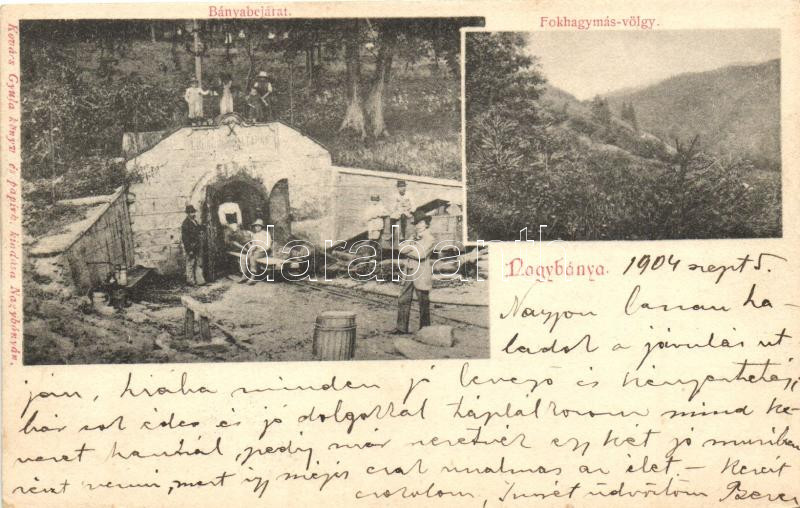 Bányabejárat.
Fokhagymás-völgy.
Kovács Gyula könyv és papírk. kiadása Nagybányán.
darabanth.com
Nagybánya. 1904 szept 5.
Nagyon lassan ha-
ladok a javulás ut
ján, hiába minden jó levegő és kényeztetés;
bár sok édes és jó dolgokkal táplálkozom mind
, pedig már szeretnék egy két jó muriban
részt venni, mert így mégis csak unalmas az élet –
csókolom, Ismét üdvözlöm